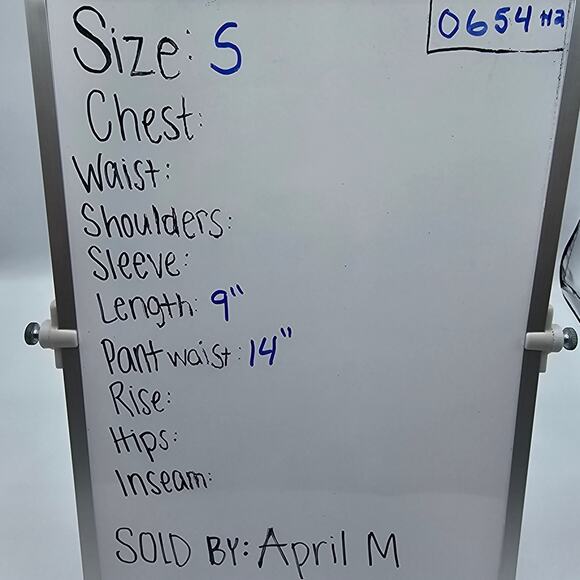 Size: S
0654 H2
Chest:
Waist:
Shoulders:
Sleeve:
Length: 9"
Pant waist: 14"
Rise:
Hips:
Inseam:
SOLD BY: April M